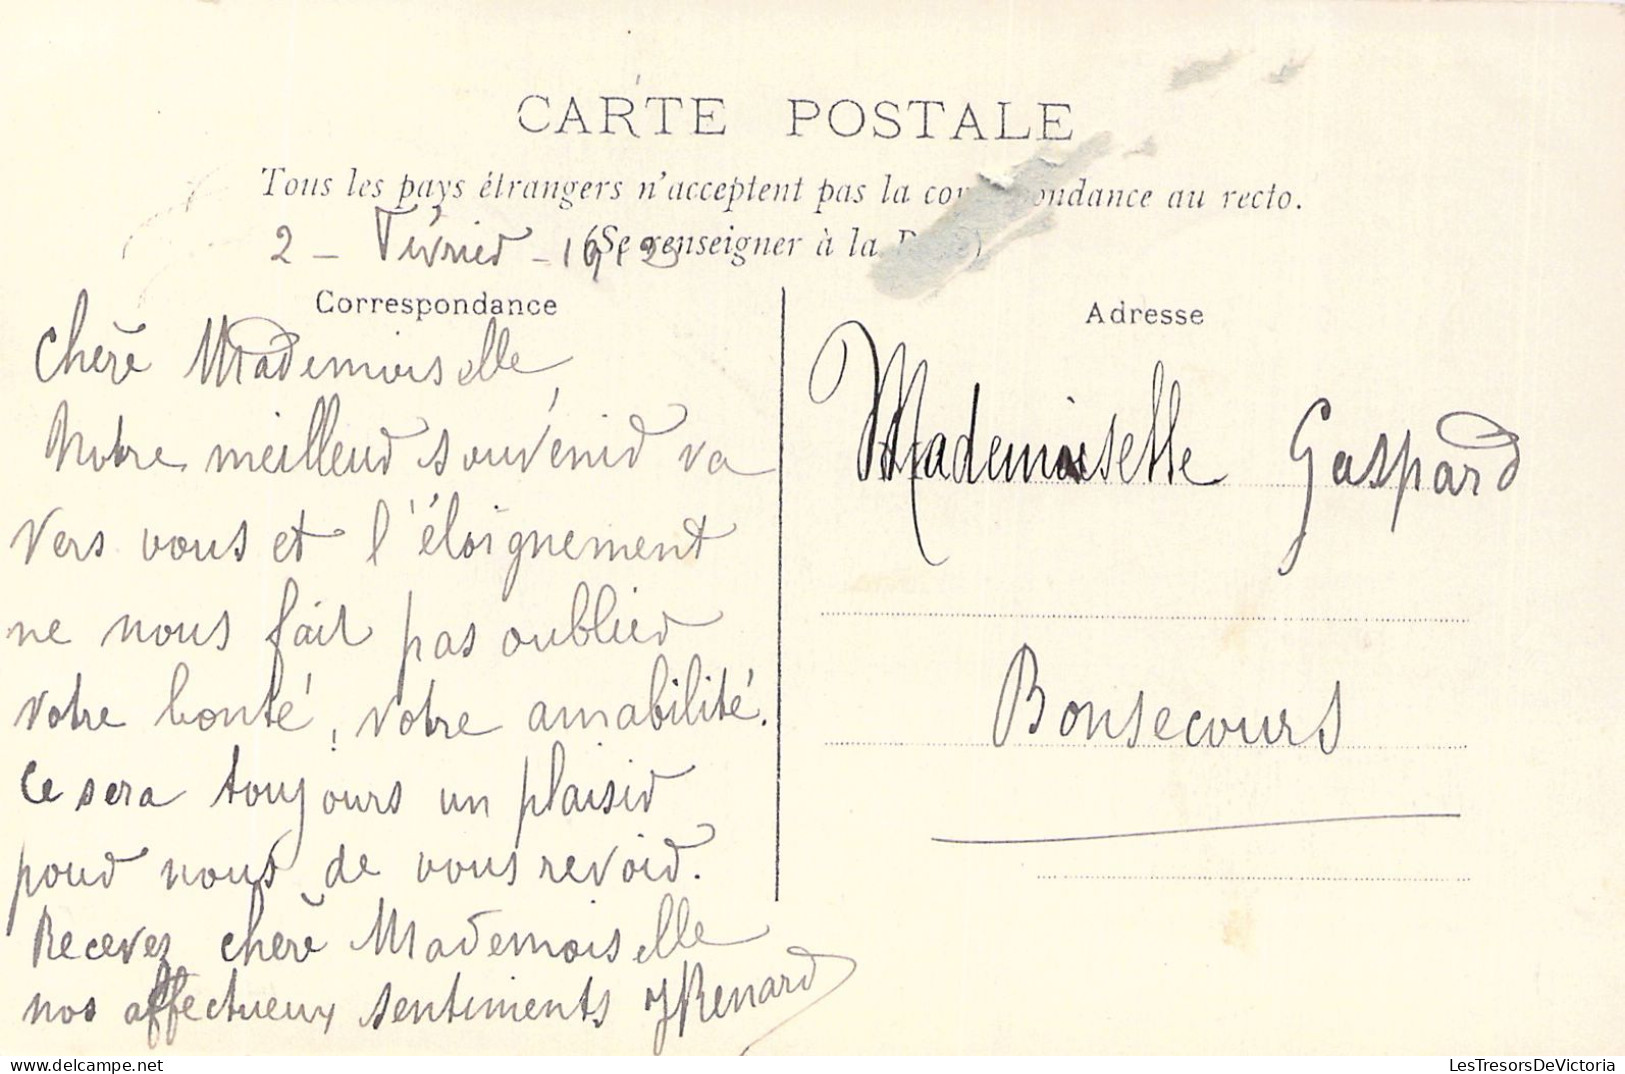 CARTE POSTALE
Tous les pays étrangers n'acceptent pas la correspondance au recto.
(Se renseigner à la Poste)
2 - Février - 1912
Correspondance
Adresse
Chère Mademoiselle,
Notre meilleur souvenir va
vers vous et l'éloignement
ne nous fait pas oublier
votre bonté, votre amabilité.
Ce sera toujours un plaisir
pour nous de vous revoir.
Recevez chère Mademoiselle
nos affectueux sentiments JRenard
Mademoiselle Gaspard
Bonsecours
LesTresorsDeVictoria